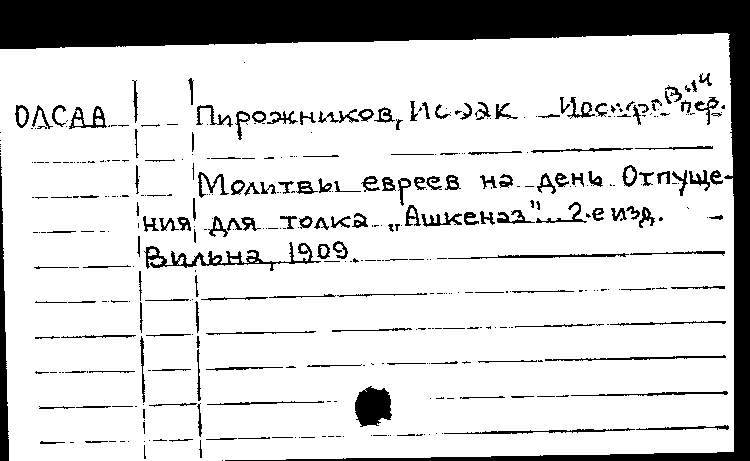 ОЛСАА Пирожников, Исаак Иосифович пер.
Молитвы евреев на день Отпуще-
ния для толка „Ашкеназ"... 2-е изд.
Вильна, 1909.